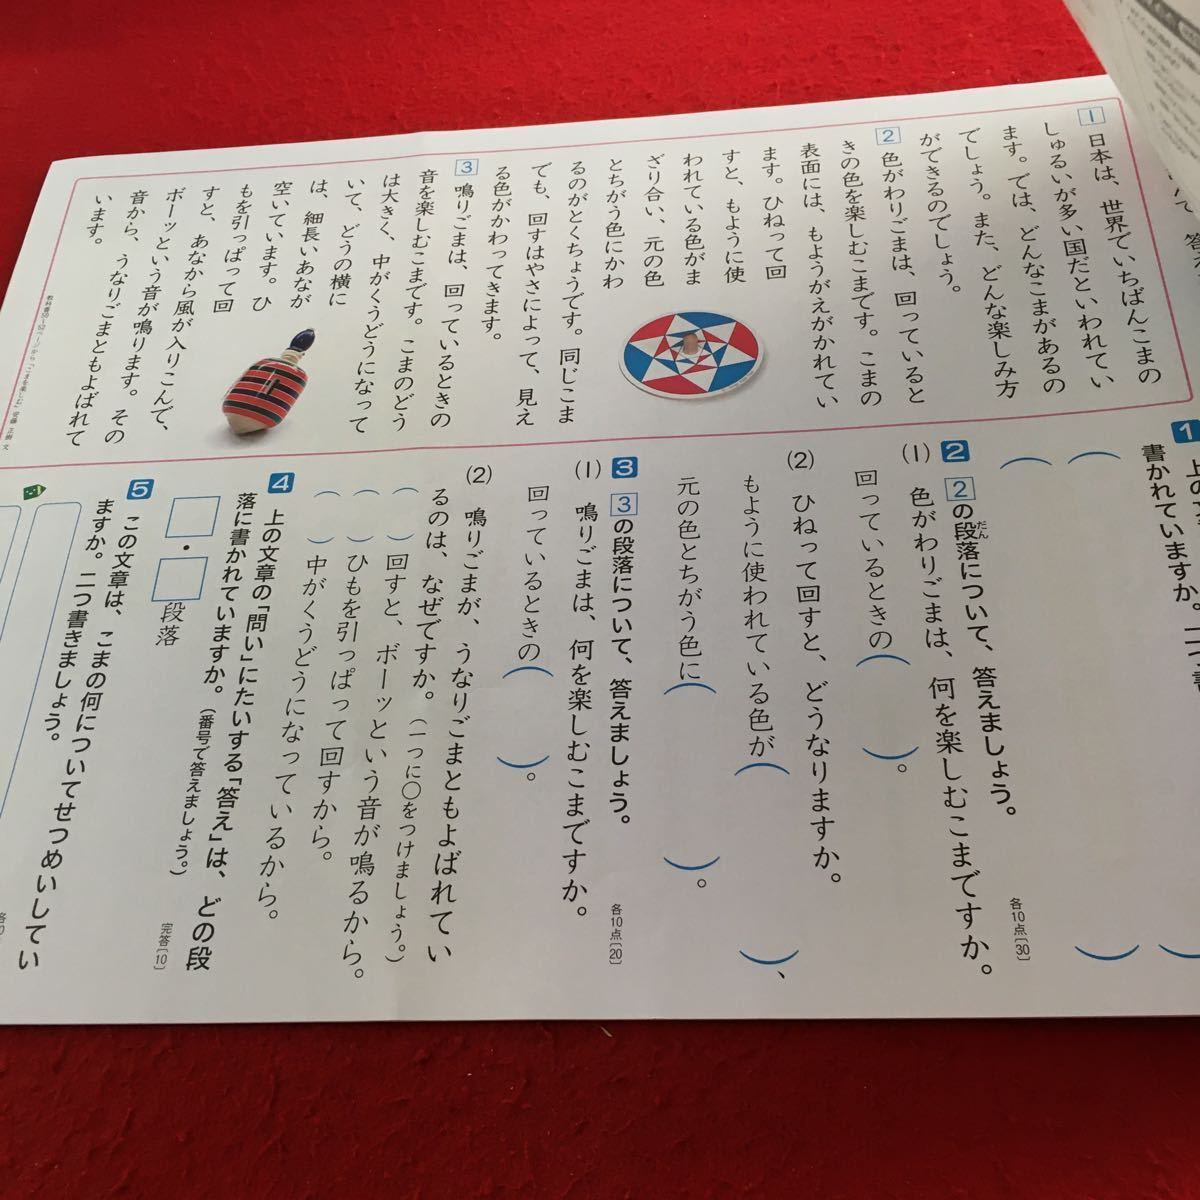 1 日本は、世界でいちばんこまの
しゅるいが多い国だといわれてい
ます。では、どんなこまがあるの
でしょう。また、どんな楽しみ方
ができるのでしょう。
2 色がわりごまは、回っていると
きの色を楽しむこまです。こまの
表面には、もようがえがかれてい
ます。ひねって回
すと、もように使
われている色がま
ざり合い、元の色
とちがう色にかわ
るのがとくちょうです。同じこま
でも、回すはやさによって、見え
る色がかわってきます。
3 鳴りごまは、回っているときの
音を楽しむこまです。こまのどう
は大きく、中がくうどうになって
いて、どうの横に
は、細長いあなが
空いています。ひ
もを引っぱって回
すと、あなから風が入りこんで、
ボーッという音が鳴ります。その
音から、うなりごまともよばれて
います。
教科書50~52ページから「こまを楽しむ」安藤 正樹 文
1 上の文
書かれていますか。二つ書
2 2の段落について、答えましょう。
だん
各10点〔30〕
(1) 色がわりごまは、何を楽しむこまですか。
回っているときの( )。
(2) ひねって回すと、どうなりますか。
もように使われている色が( )、
元の色とちがう色に( )。
3 3の段落について、答えましょう。
各10点〔20〕
(1) 鳴りごまは、何を楽しむこまですか。
回っているときの( )。
(2) 鳴りごまが、うなりごまともよばれてい
るのは、なぜですか。(一つに○をつけましょう。)
( )回すと、ボーッという音が鳴るから。
( )ひもを引っぱって回すから。
( )中がくうどうになっているから。
4 上の文章の「問い」にたいする「答え」は、どの段
落に書かれていますか。(番号で答えましょう。)
完答〔10〕
・ 段落
5 この文章は、こまの何についてせつめいしてい
ますか。二つ書きましょう。